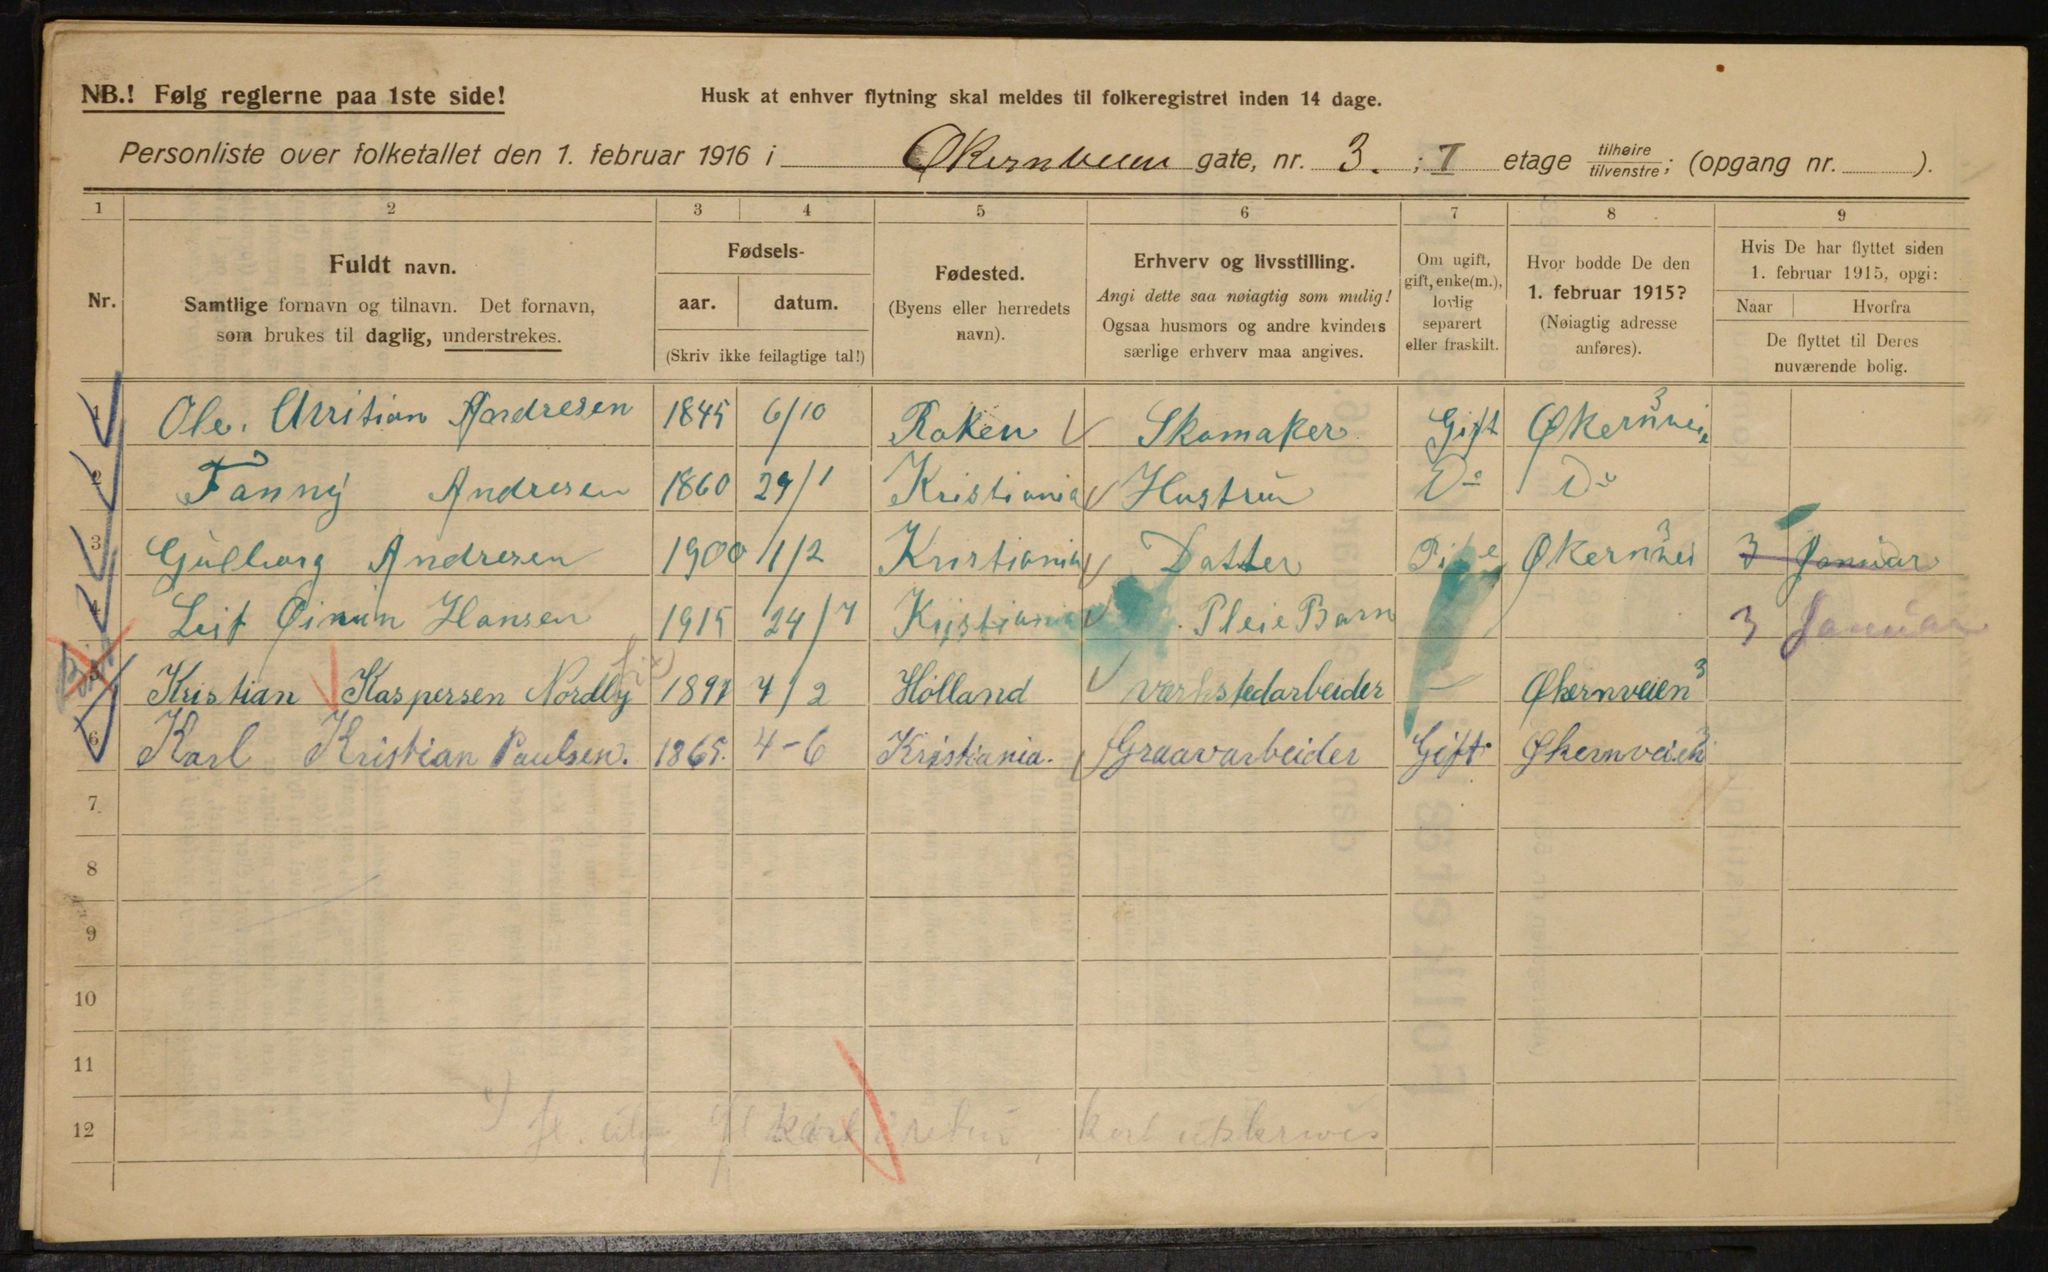 NB.! Følg reglerne paa 1ste side!
Husk at enhver flytning skal meldes til folkeregistret inden 14 dage.
Personliste over folketallet den 1. februar 1916 i Økernveien gate, nr. 3. ; I etage tilhøire/tilvenstre; (opgang nr. ).
1 2 3 4 5 6 7 8 9
Nr.
Fuldt navn.
Samtlige fornavn og tilnavn. Det fornavn,
som brukes til daglig, understrekes.
Fødsels-
aar. datum.
(Skriv ikke feilagtige tal!)
Fødested.
(Byens eller herredets
navn).
Erhverv og livsstilling.
Angi dette saa nøiagtig som mulig!
Ogsaa husmors og andre kvinders
særlige erhverv maa angives.
Om ugift,
gift, enke(m.),
lovlig
separert
eller fraskilt.
Hvor bodde De den
1. februar 1915?
(Nøiagtig adresse
anføres).
Hvis De har flyttet siden
1. februar 1915, opgi:
Naar Hvorfra
De flyttet til Deres
nuværende bolig.
1 Ole. Andresen 1845 6/10 Røken Skomaker Gift Økernvei 3
2 Fanny Andresen 1860 29/1 Kristiania Hustru Do Do
3 Gulborg Andresen 1900 1/2 Kristiania Datter Pige Økernvei 3 3 Januar
4 Leif Hansen 1915 24/7 Kristiania Pleie Barn 3 Januar
5 Kristian Kaspersen Nordby 1897 4/2 Hølland værkstedarbeider — Økernveien 3
6 Karl Kristian Paulsen. 1865. 4-6 Kristiania. Graavarbeider Gift. Økernveien 3
7
8
9
10
11
12